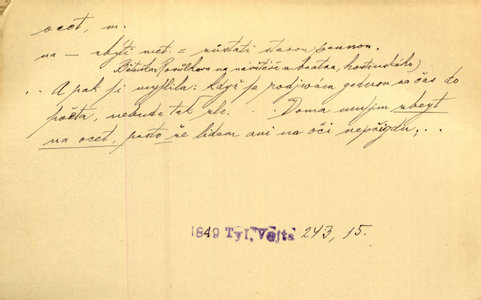 ocet, m.
na – zbýti met. = zůstati starou pannou.
na návštěvě u bratra, hostinského
.. A pak si myslila: když se podívám jednou za čas do
počta, nebude tak zle. .. Doma musím zbyt
na ocet, proto že lidem ani na oči nepřijdu, ..
1849 Tyl, Vojta 243, 15.